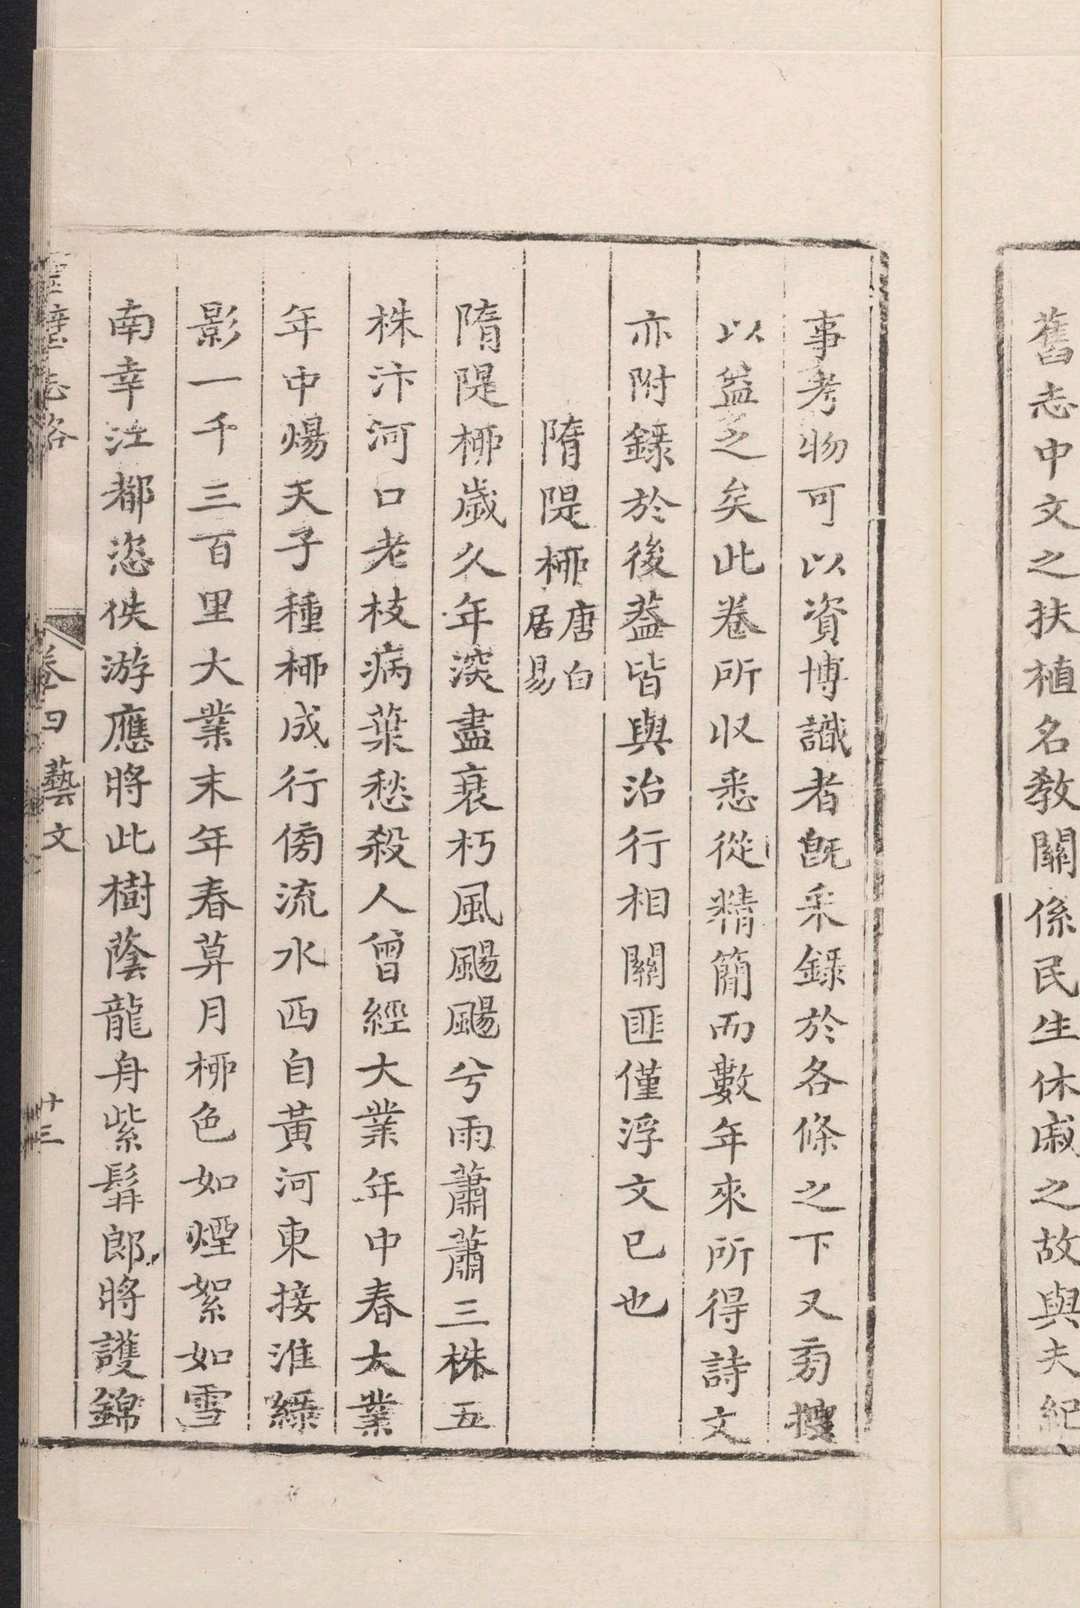 舊志中文之扶植名教關係民生休戚之故與夫紀
事考物可以資博識者旣采錄於各條之下又旁搜
以益之矣此卷所收悉從精簡而數年來所得詩文
亦附錄於後葢皆與治行相關匪僅浮文已也
隋隄桺唐白居易
隋隄桺歲久年深盡衰朽風颺颺兮雨蕭蕭三株五
株汴河口老枝病葉愁殺人曾經大業年中春大業
年中煬天子種桺成行傍流水西自黃河東接淮綠
影一千三百里大業末年春暮月桺色如煙絮如雪
南幸江都恣佚游應將此樹蔭龍舟紫髯郎將護錦
靈璧志略
卷四 藝文
十三